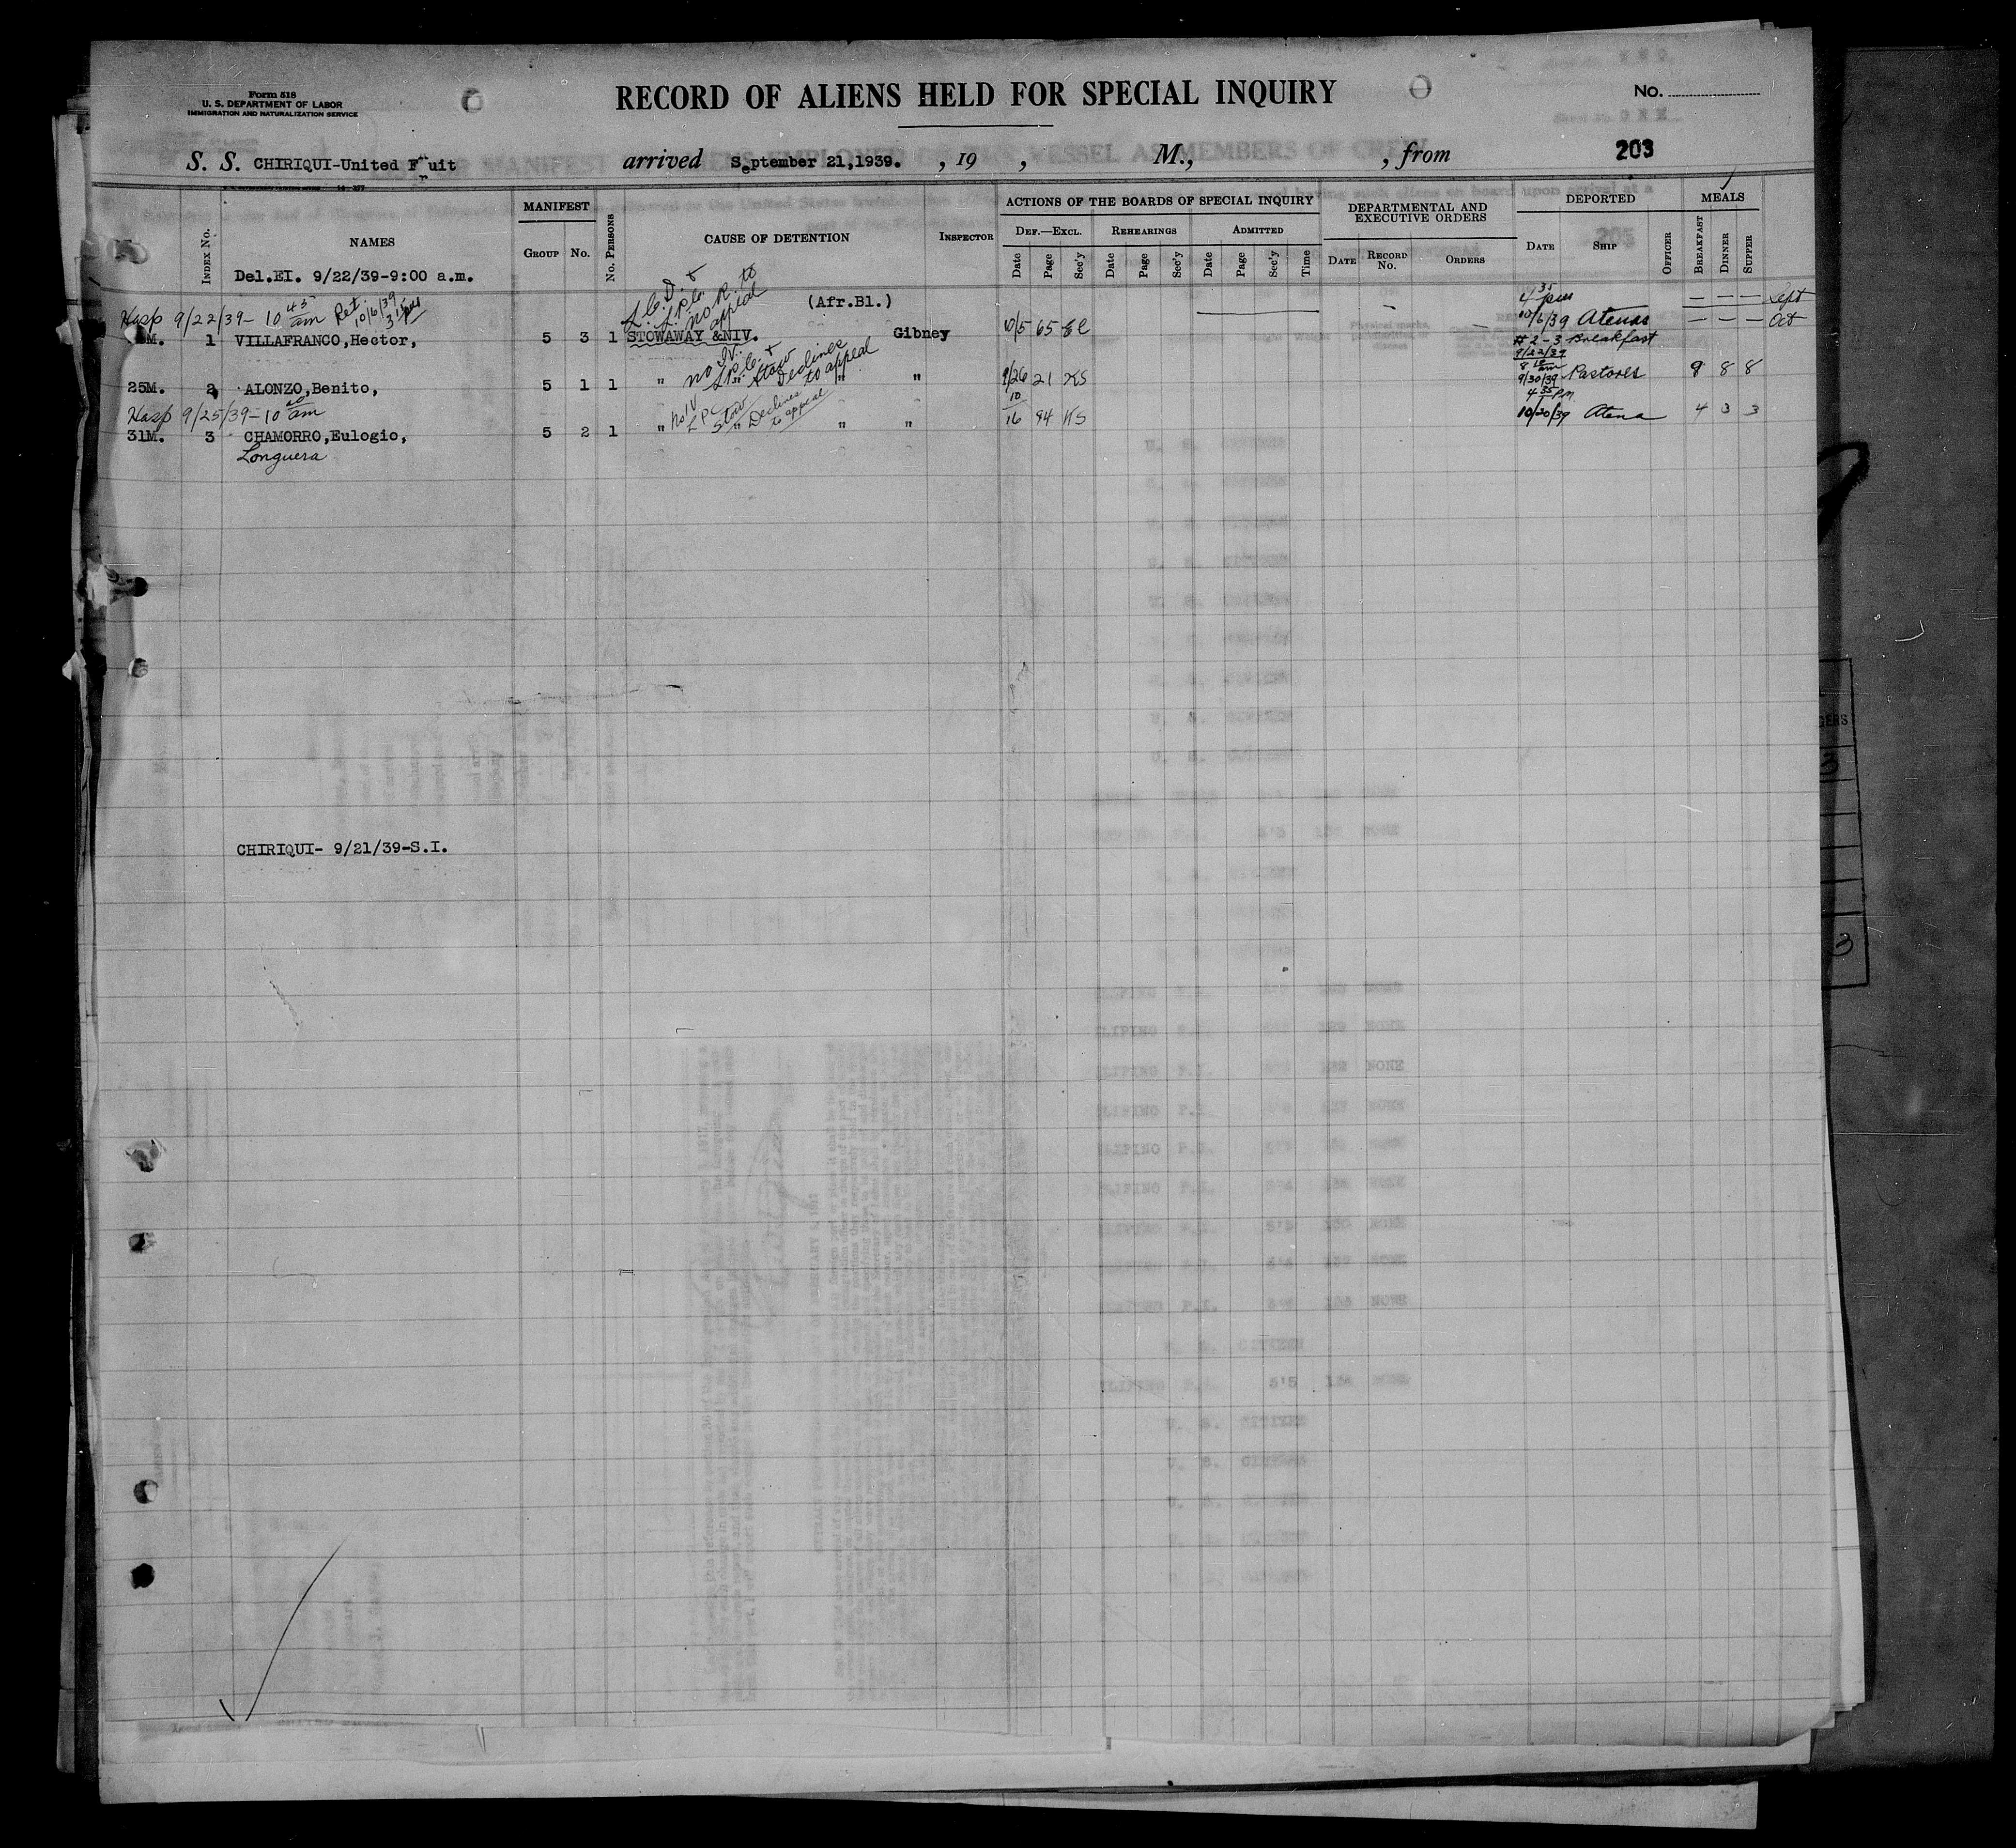 Form 518
U. S. DEPARTMENT OF LABOR
IMMIGRATION AND NATURALIZATION SERVICE
RECORD OF ALIENS HELD FOR SPECIAL INQUIRY
No.
S. S. CHIRIQUI-United Fruit arrived September 21,1939. , 19 , M., , from 203
INDEX No. NAMES MANIFEST GROUP No. No. PERSONS CAUSE OF DETENTION INSPECTOR
ACTIONS OF THE BOARDS OF SPECIAL INQUIRY
DEF.—EXCL. Date Page Sec'y REHEARINGS Date Page Sec'y ADMITTED Date Page Sec'y Time
DEPARTMENTAL AND EXECUTIVE ORDERS DATE RECORD No. ORDERS
DEPORTED DATE SHIP OFFICER
MEALS BREAKFAST DINNER SUPPER
Del.EI. 9/22/39-9:00 a.m.
L.P.C. no R. to appeal
(Afr.Bl.)
Hosp 9/22/39- 10 45 am Ret. 10/6/39
M. 1 VILLAFRANCO,Hector, 5 3 1 STOWAWAY &NIV. Gibney 10/5 65 4 35 pm 10/6/39 Atenas — — — Sept
— — — Oct
# 2-3 Breakfast
9/22/39
no IV. L.P.C. & Stow Declines to appeal
25M. 2 ALONZO,Benito, 5 1 1 " " " " 9/26 21 KS 9/30/39 Pastores 9 8 8
Hosp 9/25/39-10 am
no IV LPC Stow Declines to appeal
31M. 3 CHAMORRO,Eulogio, 5 2 1 " " " " 10/16 94 KS 4 35 PM 10/20/39 Atena 4 3 3
Longuera
CHIRIQUI- 9/21/39-S.I.